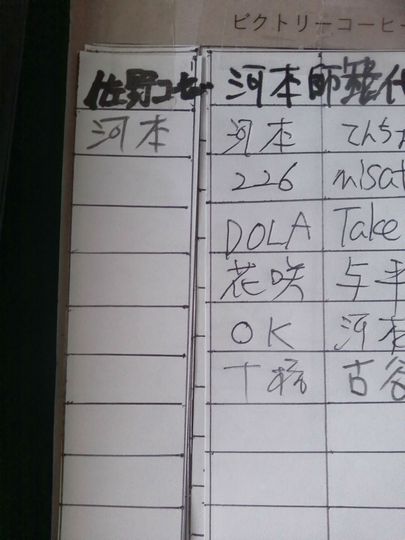 ビクトリーコーヒー
佐野コーヒー 河本師範代
河本 河本 てんち
226 misat
DOLA Take
花咲 与平
OK 河本
十 古谷